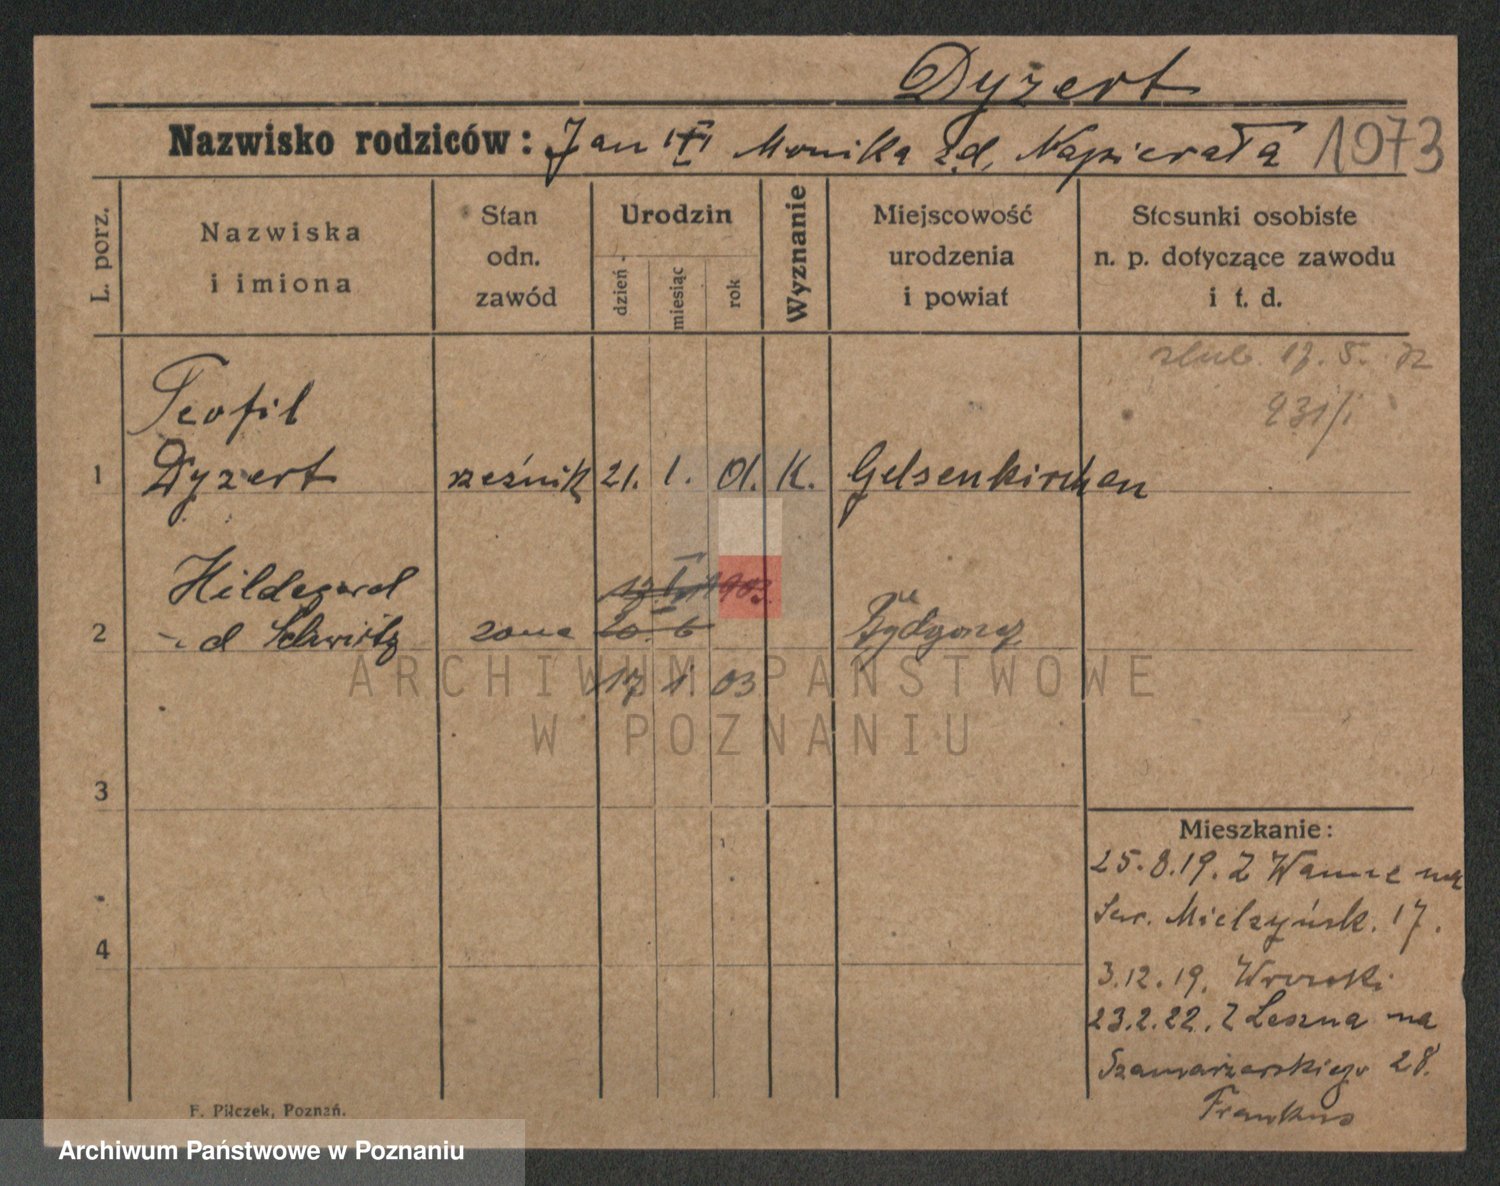 Dyzert
Nazwisko rodziców: Jan Monika z d. Napierała 1073
L. porz.
Nazwiska
i imiona
Stan
odn.
zawód
Urodzin
dzień
miesiąc
rok
Wyznanie
Miejscowość
urodzenia
i powiat
Stosunki osobiste
n. p. dotyczące zawodu
i t. d.
17. 5.
Teofil
1 Dyzert rzeźnik 21. 1. 01. K. Gelsenkirchen
Hildegard 1903.
2 d żona 20. 6 Bydgoszcz
17 1 03
ARCHIWUM PAŃSTWOWE
W POZNANIU
3
Mieszkanie:
25.8.19. Z Wanne na
Mielżyńsk. 17.
4
3.12.19. Wronki
23.2.22. Z Leszna na
Szamarzerskiego 28.
F. Pilczek, Poznań.
Archiwum Państwowe w Poznaniu